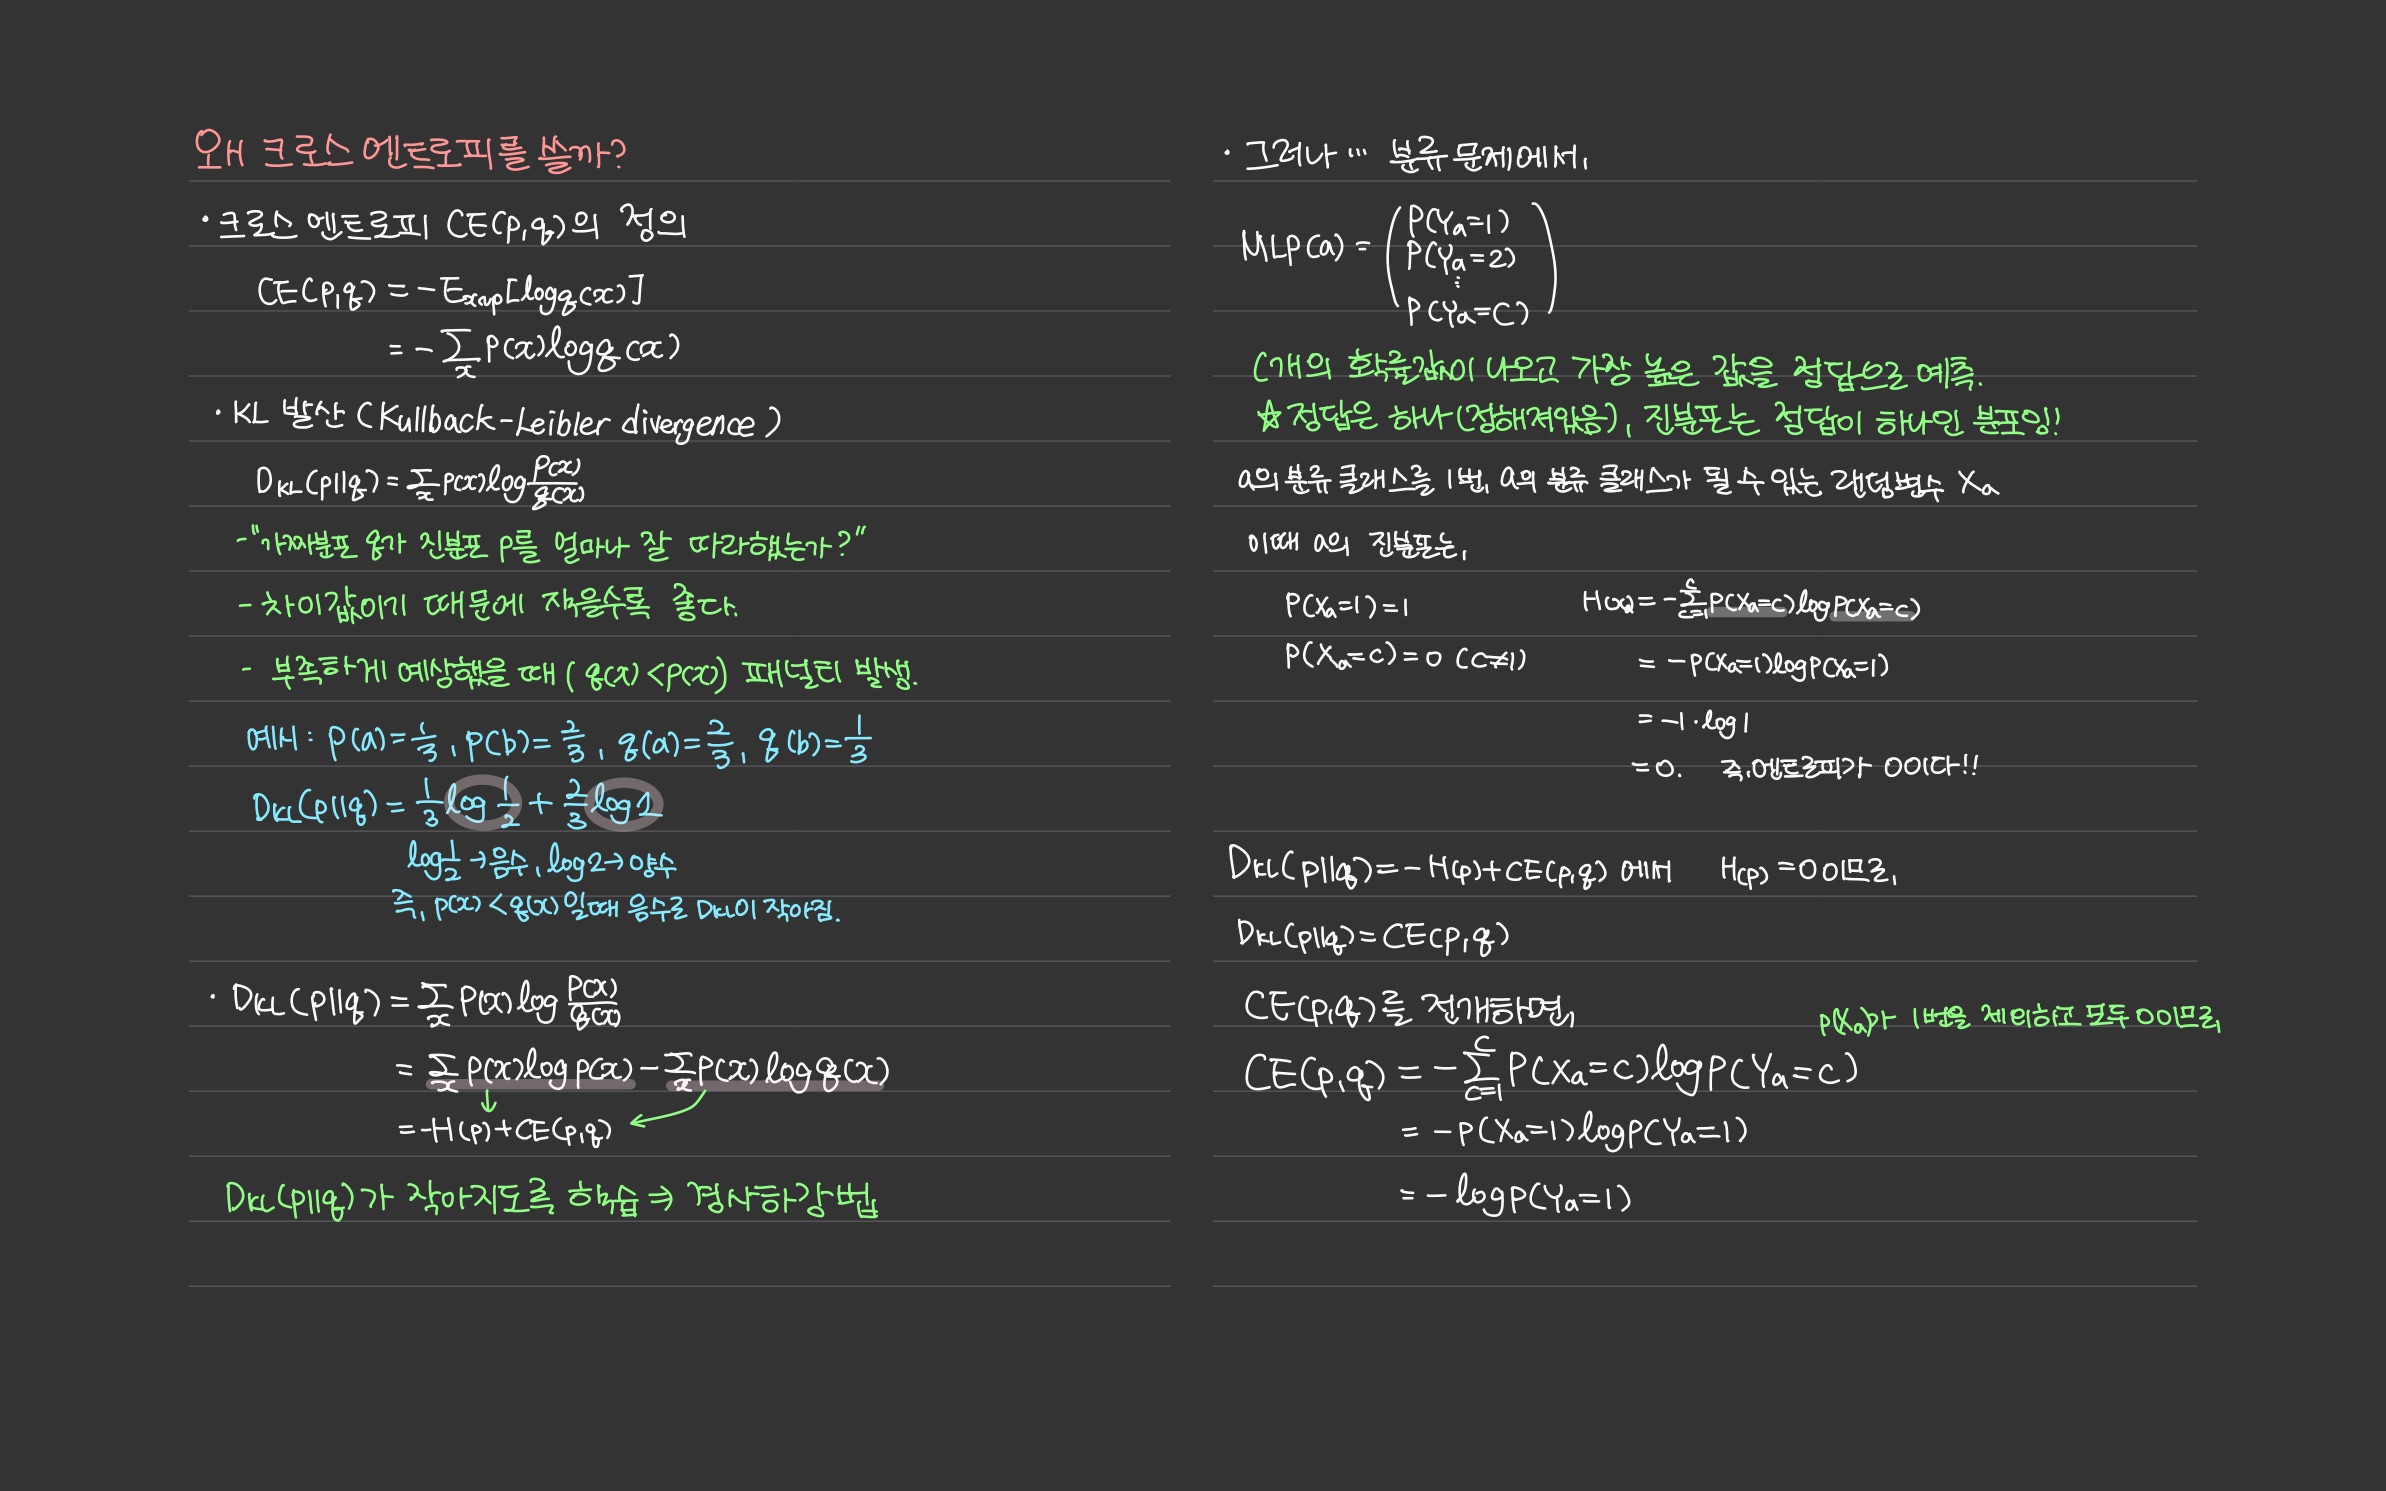 왜 크로스 엔트로피를 쓸까?
· 크로스 엔트로피 CE(p,q)의 정의
CE(p,q) = -E_{x~p}[log q(x)]
= -∑_x p(x) log q(x)
· KL 발산 (Kullback-Leibler divergence)
D_KL(p||q) = ∑_x p(x) log p(x)/q(x)
- "가짜분포 q가 진분포 p를 얼마나 잘 따라했는가?"
- 차이값이기 때문에 작을수록 좋다.
- 부족하게 예상했을 때 (q(x) < p(x)) 패널티 발생.
예시 : p(a) = 1/3, p(b) = 2/3, q(a) = 2/3, q(b) = 1/3
D_KL(p||q) = 1/3 log 1/2 + 2/3 log 2
log 1/2 → 음수, log 2 → 양수
즉, p(x) < q(x) 일때 음수로 D_KL이 작아짐.
· D_KL(p||q) = ∑_x p(x) log p(x)/q(x)
= ∑_x p(x) log p(x) - ∑_x p(x) log q(x)
= -H(p) + CE(p,q)
D_KL(p||q)가 작아지도록 학습 ⇒ 경사하강법
· 그러나 … 분류 문제에서,
MLP(a) = ( P(Y_a=1)
P(Y_a=2)
⋮
P(Y_a=C) )
C개의 확률값이 나오고 가장 높은 값을 정답으로 예측.
☆ 정답은 하나(정해져있음), 진분포는 정답이 하나인 분포임!!
a의 분류 클래스를 1번, a의 분류 클래스가 될 수 있는 랜덤변수 X_a
이때 a의 진분포는,
P(X_a=1) = 1
P(X_a=c) = 0 (c≠1)
H(x_a) = -∑_{c=1}^{C} P(X_a=c) log P(X_a=c)
= -P(X_a=1) log P(X_a=1)
= -1 · log 1
= 0. 즉, 엔트로피가 0이다!!
D_KL(p||q) = -H(p) + CE(p,q) 에서 H(p) = 0 이므로,
D_KL(p||q) = CE(p,q)
CE(p,q)를 전개하면,
P(X_a)가 1번을 제외하고 모두 0이므로,
CE(p,q) = -∑_{c=1}^{C} P(X_a=c) log P(Y_a=c)
= -P(X_a=1) log P(Y_a=1)
= -log P(Y_a=1)